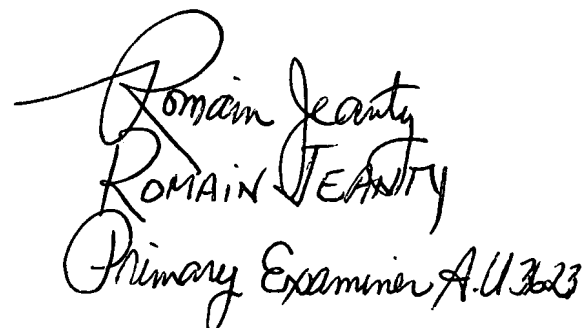 Romain Jeanty
ROMAIN JEANTY
Primary Examiner A.U 3623